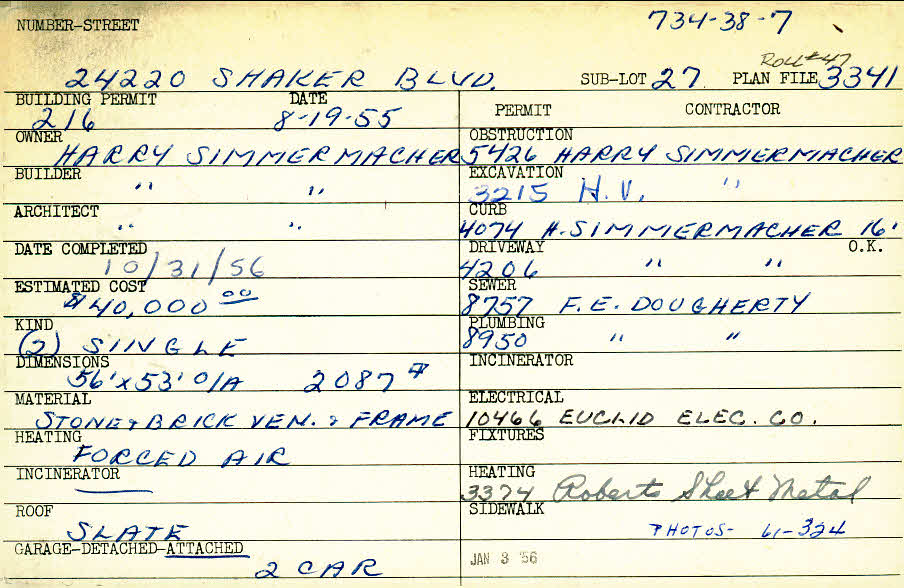 NUMBER-STREET 734-38-7
ROLL#47
24220 SHAKER BLVD. SUB-LOT 27 PLAN FILE 3341
BUILDING PERMIT DATE
216 8-19-55
OWNER
HARRY SIMMERMACHER
BUILDER
" "
ARCHITECT
" "
DATE COMPLETED
10/31/56
ESTIMATED COST
$40,000 00
KIND
(2) SINGLE
DIMENSIONS
56'x53' O/A 2087
MATERIAL
STONE & BRICK VEN. & FRAME
HEATING
FORCED AIR
INCINERATOR
ROOF
SLATE
GARAGE-DETACHED-ATTACHED
2 CAR
PERMIT CONTRACTOR
OBSTRUCTION
5426 HARRY SIMMERMACHER
EXCAVATION
3215 H.V. "
CURB
4074 H. SIMMERMACHER 16'
DRIVEWAY O.K.
4206 " "
SEWER
8757 F.E. DOUGHERTY
PLUMBING
8950 " "
INCINERATOR
ELECTRICAL
10466 EUCLID ELEC. CO.
FIXTURES
HEATING
3374 Roberts Sheet Metal
SIDEWALK
PHOTOS- 61-324
JAN 3 '56